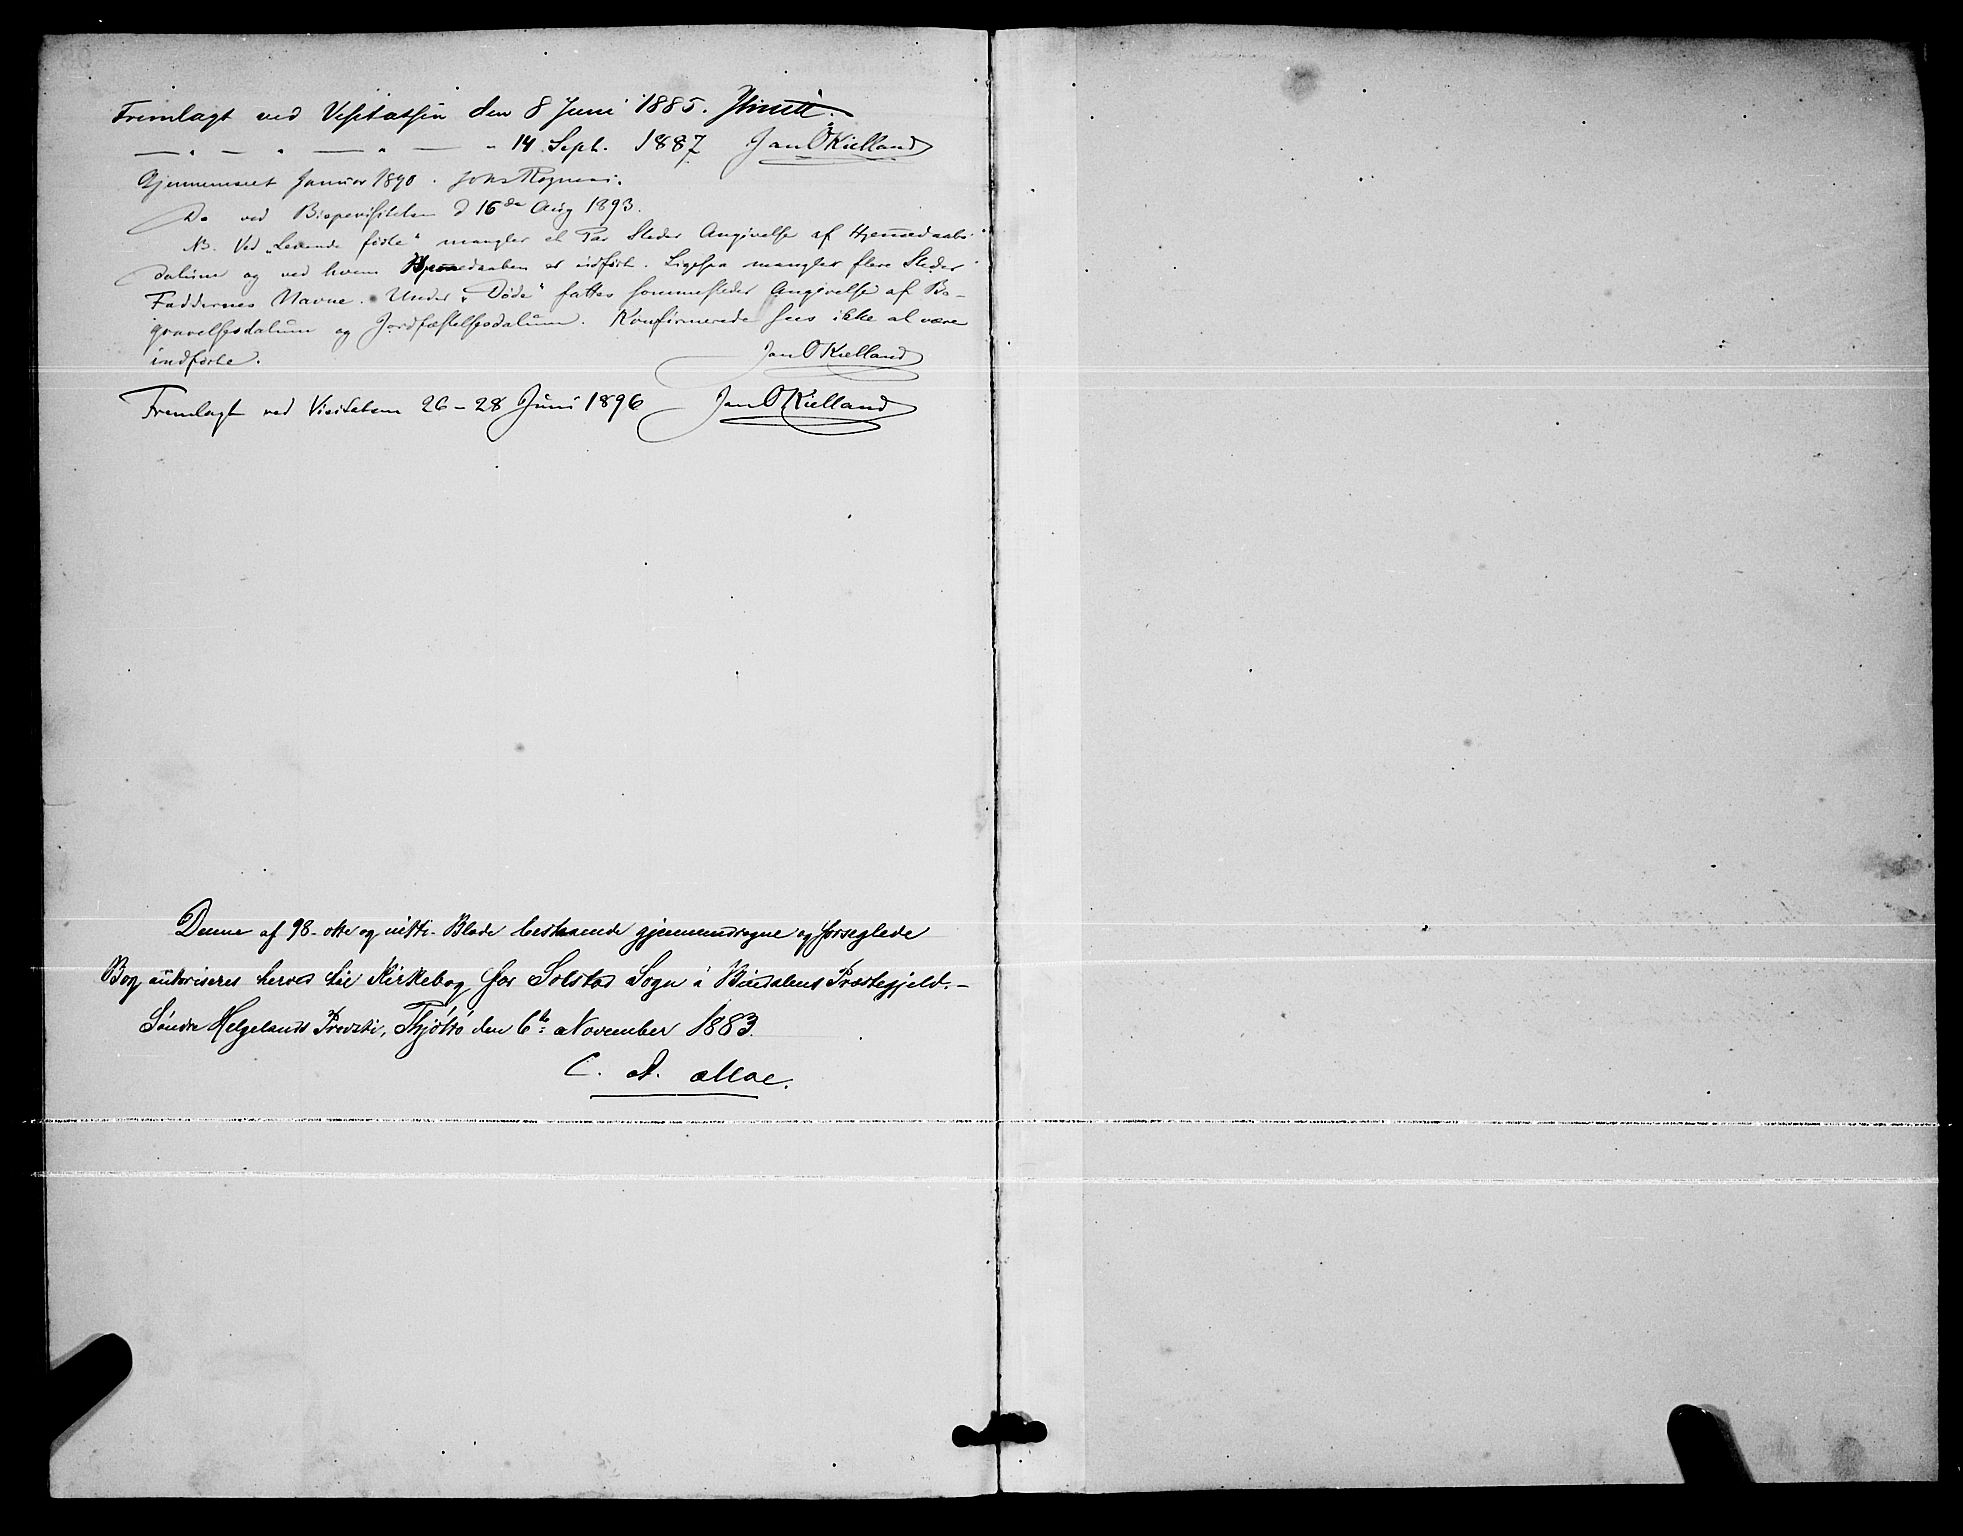 Fremlagt ved Visitatsen den 8 Juni 1885.
— " — " — " — " 14. Sept. 1887 Jan O Kielland
Gjennemseet Januar 1890.
Do ved Bispevisitatsen d 16de Aug 1893.
NB. Ved „Levende fødte“ mangler et Par Steder Angivelse af Hjemmedaabs-
datum og ved hvem Hjemmedaaben er udført. Ligesaa mangler flere Steder
Faddernes Navne. Under „Døde“ fattes sommesteder Angivelse af Be-
gravelsesdatum og Jordfæstelsesdatum. Konfirmerede sees ikke at være
indførte. Jan O Kielland
Fremlagt ved Visitatsen 26-28 Juni 1896 Jan O Kielland
Denne af 98- otte og nitti- Blade bestaaende gjennemdragne og forseglede
Bog autoriseres herved til Kirkebog for Solstad Sogn i Bindalens Præstegjeld.-
Søndre Helgelands Provsti, Thjøttø den 6te November 1883.
C. A. Moe.